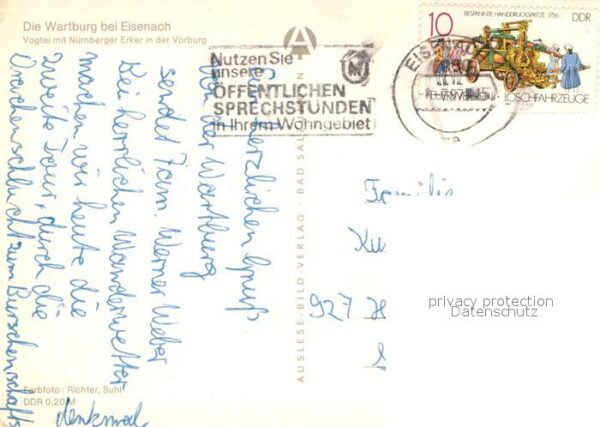 Die Wartburg bei Eisenach
Vogtei mit Nürnberger Erker in der Vorburg
Nutzen Sie
unsere
ÖFFENTLICHEN
SPRECHSTUNDEN
in Ihrem Wohngebiet
10
BESPANNTE HANDDRUCKSPRITZE 1756
DDR
LÖSCHFAHRZEUGE
herzlichen Gruß
von der Wartburg
sendet Fam. Werner Weber
Bei herrlichem Wanderwetter
machen wir heute die
zweite Tour, durch die
Drachenschlucht zum Burschenschafts
denkmal.
Familie
927
privacy protection
Datenschutz
AUSLESE-BILD-VERLAG · BAD
Farbfoto: Richter, Suhl
DDR 0,20 M